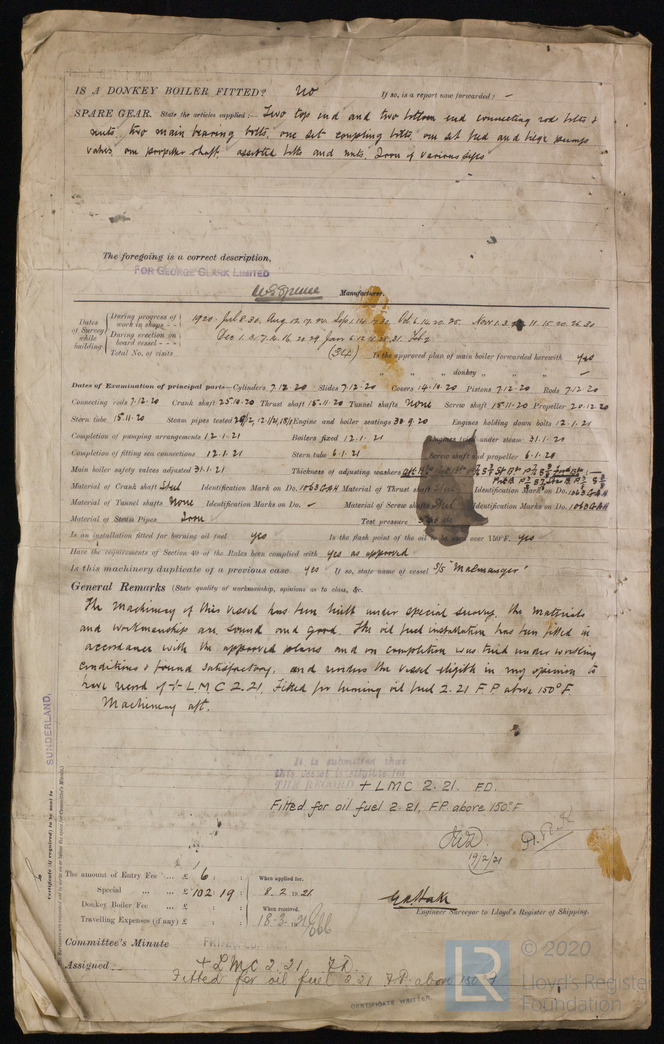 IS A DONKEY BOILER FITTED? no If so, is a report now forwarded? –
SPARE GEAR. State the articles supplied:— Two top end and two bottom end connecting rod bolts &
nuts, two main bearing bolts, one set coupling bolts, one set feed and bilge pumps
valves, one propeller shaft, assorted bolts and nuts, Iron of various sizes
The foregoing is a correct description,
FOR GEORGE CLARK LIMITED
Manufacturer.
Dates of Survey while building
During progress of work in shops - -
1920 Jul 8. 30. Aug 12. 17. Oct 6. 14. 20. 25. Nov 1. 3. 11. 15. 20. 26. 30
During erection on board vessel - - -
Dec 1. 2. 7. 14. 16. 20. 29 Jan 6. 12. 31. Feb 2
Total No. of visits (34) Is the approved plan of main boiler forwarded herewith yes
" " " donkey " " " –
Dates of Examination of principal parts—Cylinders 7.12.20 Slides 7.12.20 Covers 14.10.20 Pistons 7.12.20 Rods 7.12.20
Connecting rods 7.12.20 Crank shaft 25.10.20 Thrust shaft 15.11.20 Tunnel shafts none Screw shaft 15.11.20 Propeller 20.12.20
Stern tube 15.11.20 Steam pipes tested Engine and boiler seatings 30.9.20 Engines holding down bolts 12.1.21
Completion of pumping arrangements 12.1.21 Boilers fixed 12.1.21 Engines tried under steam 31.1.21
Completion of fitting sea connections 12.1.21 Stern tube 6.1.21 Screw shaft and propeller 6.1.20
Main boiler safety valves adjusted 31.1.21 Thickness of adjusting washers
Material of Crank shaft Steel Identification Mark on Do. 1063GAH Material of Thrust shaft Steel Identification Mark on Do. 1063GAH
Material of Tunnel shafts none Identification Marks on Do. – Material of Screw shafts Steel Identification Marks on Do. 1063GAH
Material of Steam Pipes Iron Test pressure
Is an installation fitted for burning oil fuel yes Is the flash point of the oil to be used over 150°F. yes
Have the requirements of Section 49 of the Rules been complied with yes as approved
Is this machinery duplicate of a previous case yes If so, state name of vessel S/S "Malmanger"
General Remarks (State quality of workmanship, opinions as to class, &c.
The machinery of this vessel has been built under special survey, the materials
and workmanship are sound and good. The oil fuel installation has been fitted in
accordance with the approved plans and on completion was tried under working
conditions & found satisfactory, and renders the vessel eligible in my opinion to
have record of + LMC 2.21. Fitted for burning oil fuel 2.21 F.P. above 150°F.
Machinery aft.
SUNDERLAND.
Certificate (if required) to be sent to
It is submitted that
this vessel is eligible for
THE RECORD + LMC 2.21. FD.
Fitted for oil fuel 2.21, F.P. above 150°F
19/2/21
The amount of Entry Fee ... £ 6 : :
Special ... ... £ 102 : 19 :
Donkey Boiler Fee ... £ : :
Travelling Expenses (if any) £ : :
When applied for,
8.2.1921
When received,
18.3.21
Engineer Surveyor to Lloyd's Register of Shipping.
Committee's Minute
Assigned + LMC 2.21 FD.
Fitted for oil fuel 2.21 F.P. above 150°F
CERTIFICATE WRITTEN
LR
© 2020
Lloyd's Register
Foundation